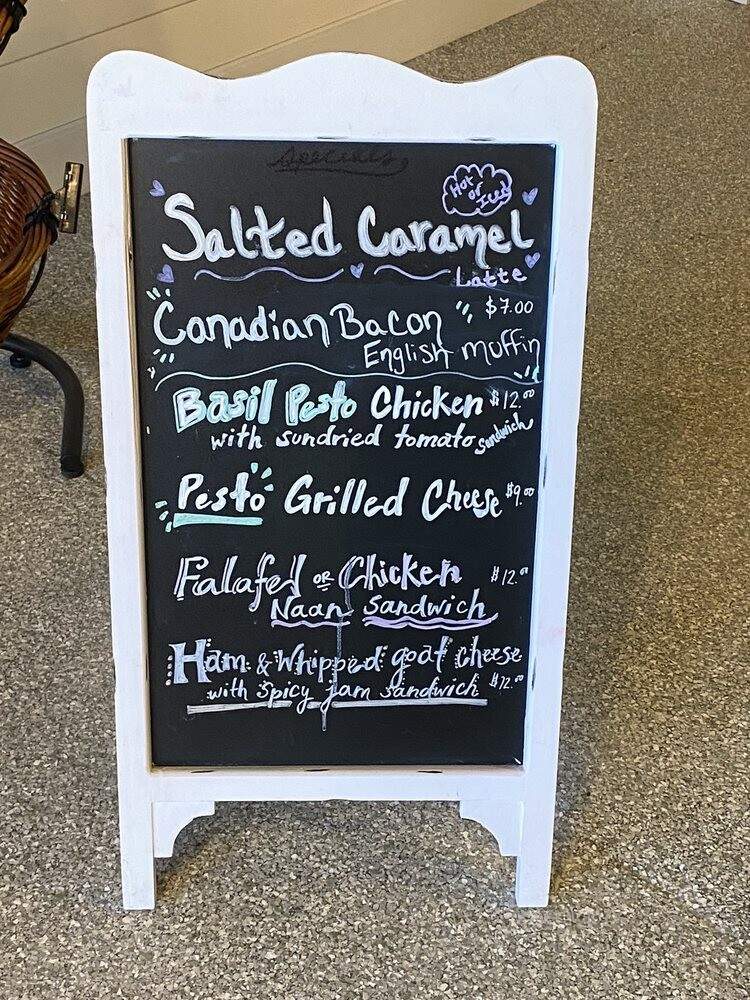 Specials
Hot
or
Iced
Salted Caramel
Latte
Canadian Bacon $7.00
English muffin
Basil Pesto Chicken $12.00
with sundried tomato sandwich
Pesto Grilled Cheese $9.00
Falafel OR Chicken $12.00
Naan Sandwich
Ham & Whipped goat cheese
with spicy jam sandwich $12.00